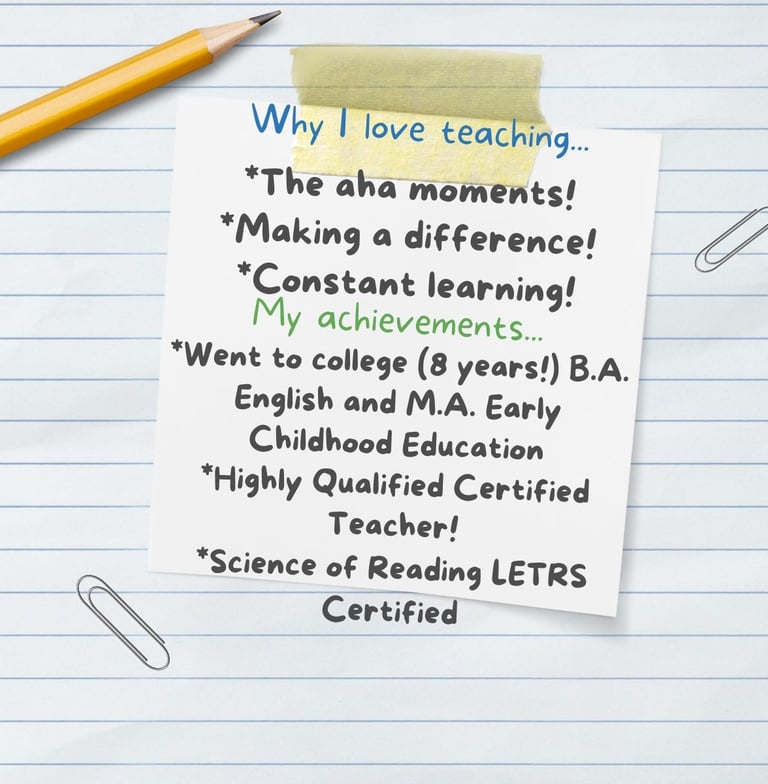 Why I love teaching...
*The aha moments!
*Making a difference!
*Constant learning!
My achievements...
*Went to college (8 years!) B.A.
English and M.A. Early
Childhood Education
*Highly Qualified Certified
Teacher!
*Science of Reading LETRS
Certified